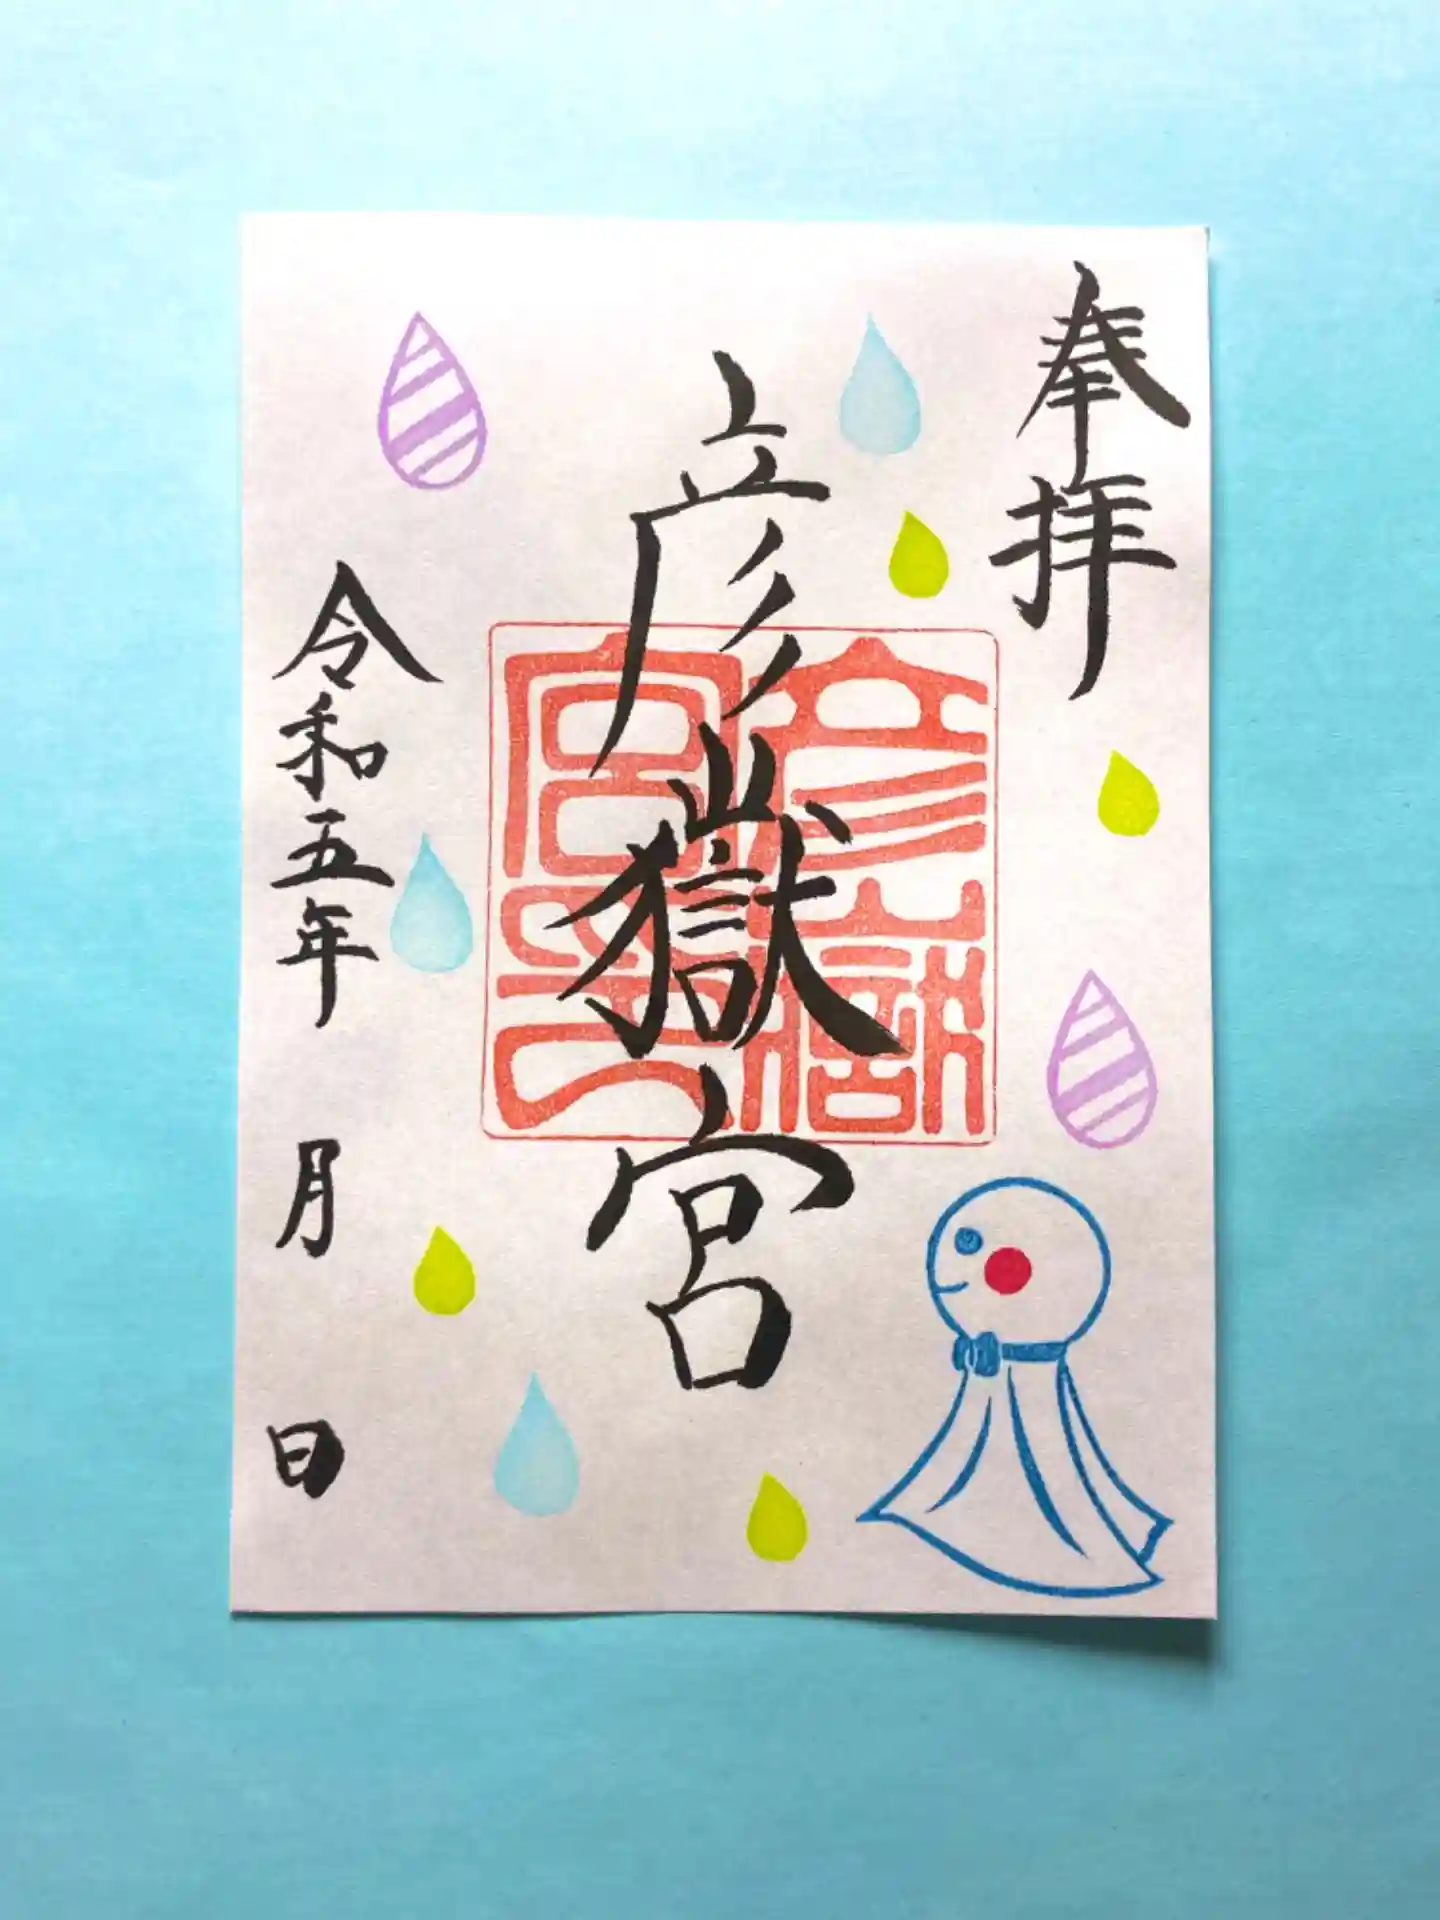 奉拝
彦嶽宮
彦嶽宮印
令和五年 月 日